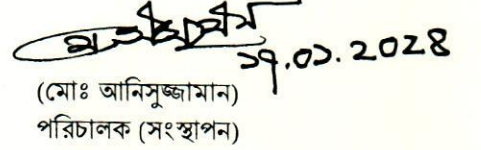 ১৭.০১.2024
(মোঃ আনিসুজ্জামান)
পরিচালক (সংস্থাপন)